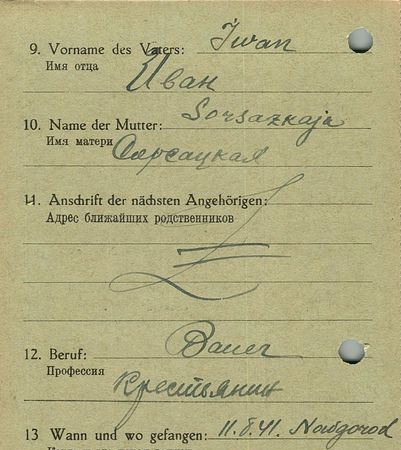 9. Vorname des Vaters: Iwan
Имя отца
Иван
10. Name der Mutter: Sorsazkaja
Имя матери Сорсацкая
11. Anschrift der nächsten Angehörigen:
Адрес ближайших родственников
12. Beruf: Bauer
Профессия
Крестьянин
13 Wann und wo gefangen: 11.8.41. Nowgorod